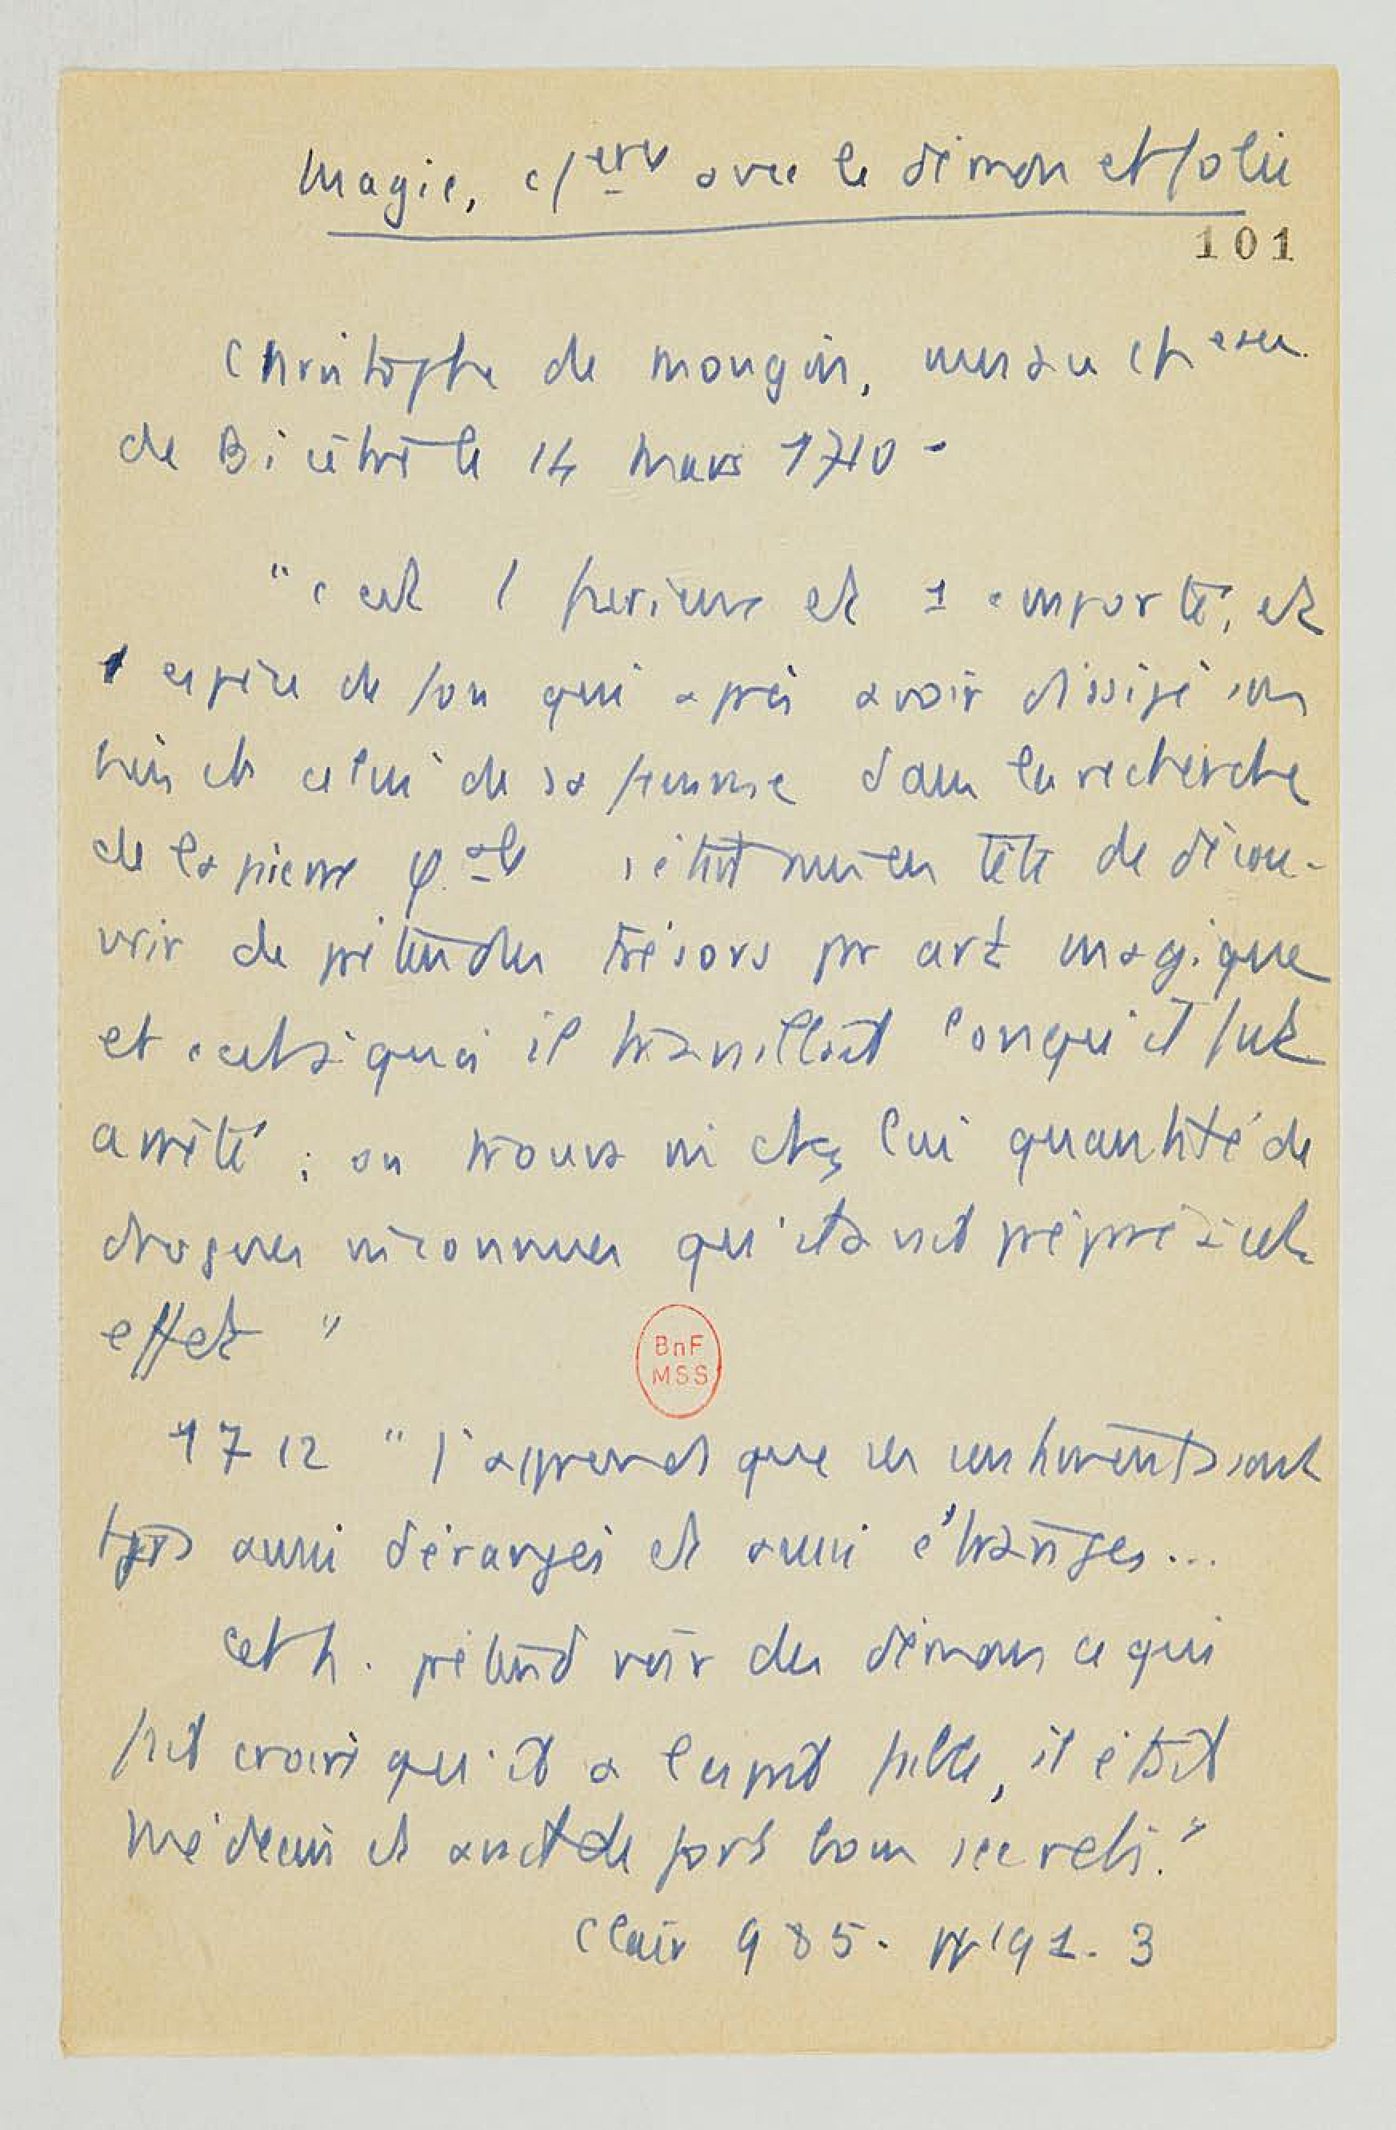 Magie, c/erce avec le démon et folie
101
Christophe de Mougin, mis au chateau
de Bicêtre le 14 mars 1710 -
"c'est 1 furieux et 1 emporté, et
1 espèce de fou qui après avoir dissipé son
bien et celui de sa femme dans la recherche
de la pierre φ.ale s'était mis en tête de décou-
vrir de prétendus trésors par art magique
et c'est à quoi il travaillait lorsqu'il fut
arrêté ; on trouva chez lui quantité de
drogues inconnues qu'il avait préparé à cet
effet "
1712 "J'apprends que ses sentiments sont
tjrs aussi dérangés et aussi étranges...
Cet h. prétend voir des démons ce qui
fait croire qu'il a l'esprit faible, il était
médecin et avait de forts bons secrets."
Clair 985. pp 191. 3
BnF
MSS